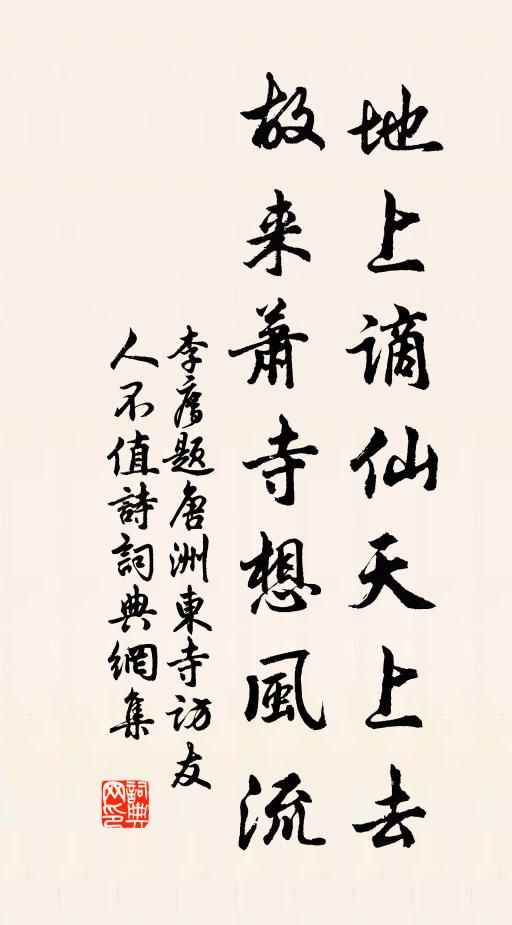 地上謫仙天上去
故来蕭寺想風流
李廌題唐洲東寺訪友
人不值詩詞典網集
詞典
网印